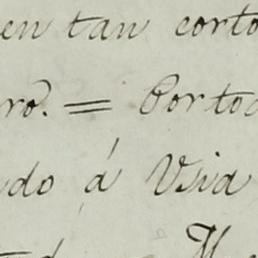 en tan corto
ro. = Portod
do á Usia